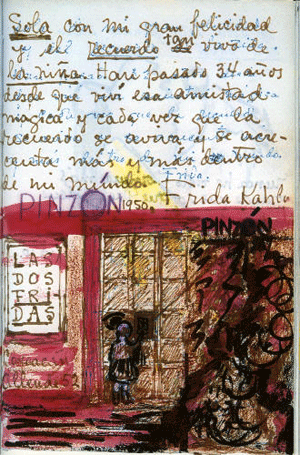 Sola con mi gran felicidad
y el recuerdo tan vivo de
la niña. Han pasado 34 años
desde que viví esa amistad
mágica y cada vez que la
recuerdo se aviva y se acre-
cienta más y más dentro
de mi mundo.
PINZÓN 1950. Frida Kahlo
PINZÓN
LAS
DOS
FRI-
DAS